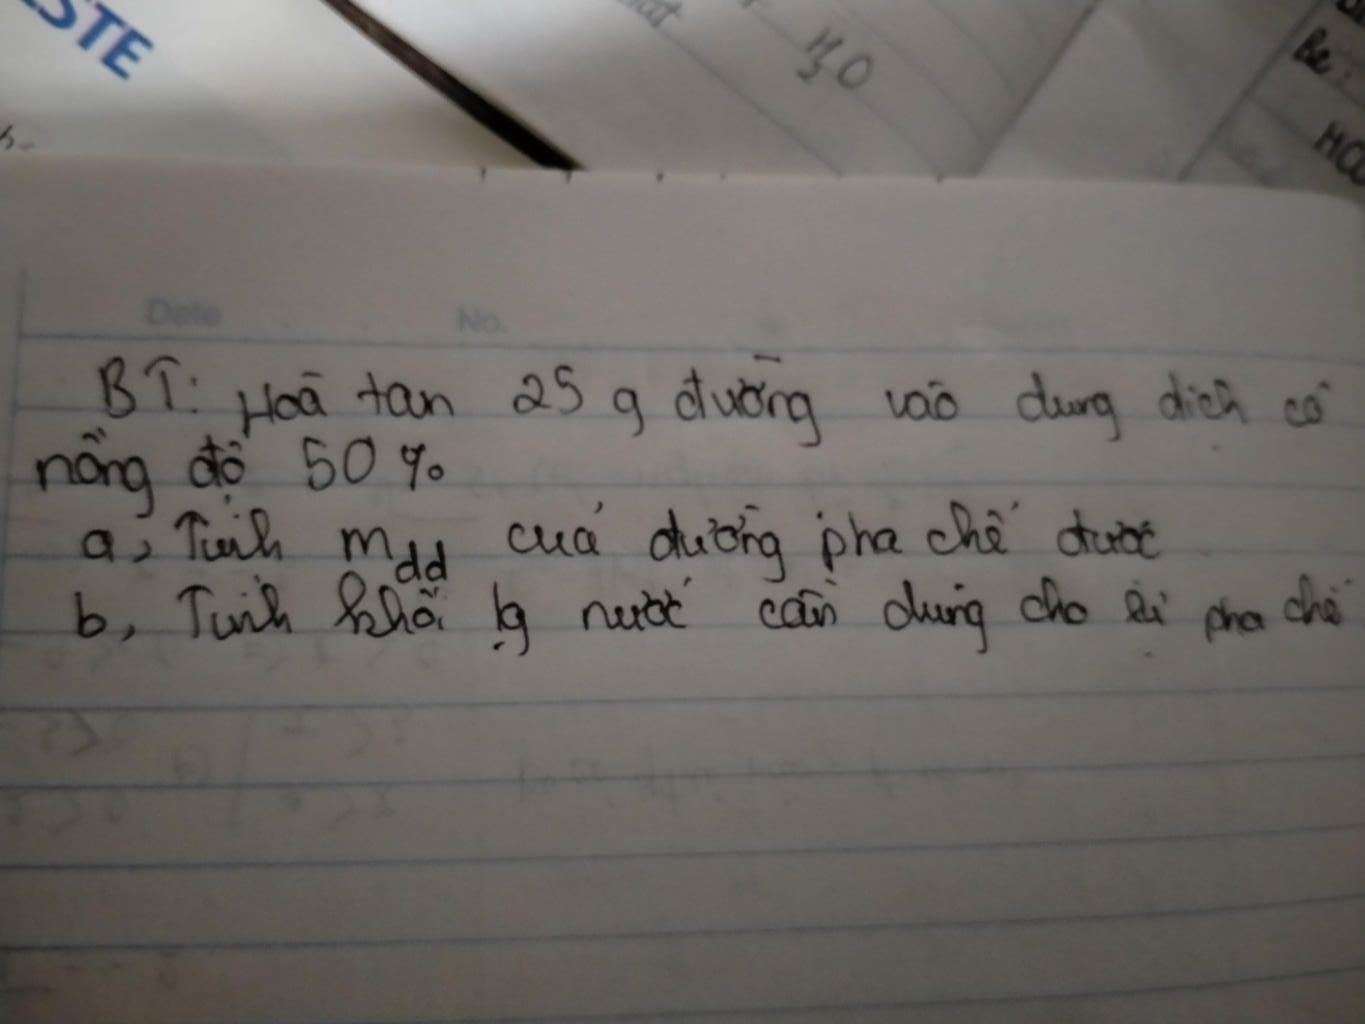 STE
H2O
Be:
Date No.
BT: Hoà tan 25 g đường vào dung dịch có
nồng độ 50%
a, Tính mdd của đường pha chế được
b, Tính khối lg nước cần dùng cho sự pha chế